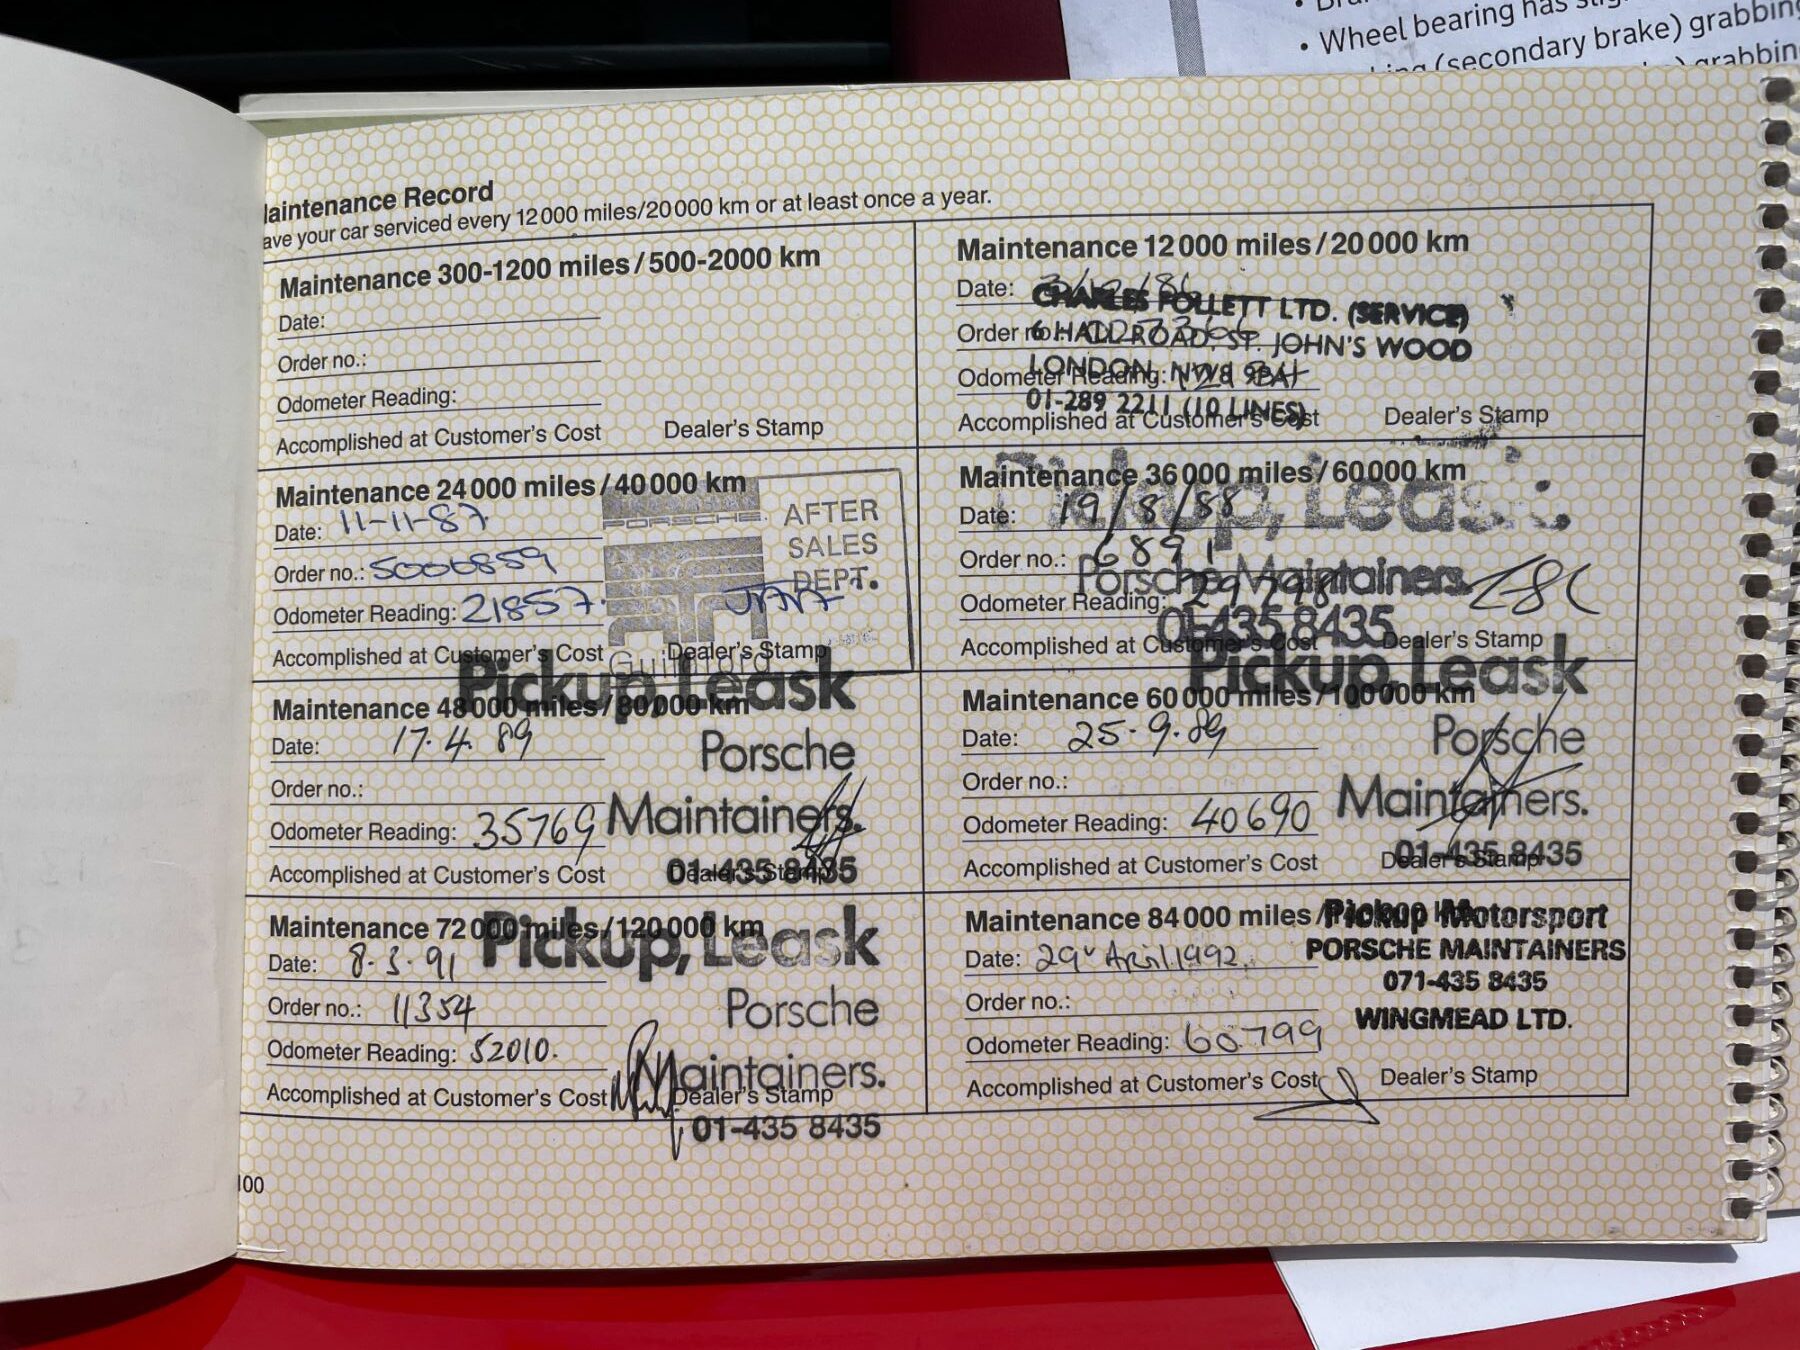 Wheel bearing has
(secondary brake) grabbing
grabbing
aintenance Record
ave your car serviced every 12 000 miles/20 000 km or at least once a year.
Maintenance 300-1200 miles/500-2000 km
Date:
Order no.:
Odometer Reading:
Accomplished at Customer's Cost Dealer's Stamp
Maintenance 12 000 miles/20 000 km
Date:
CHARLES FOLLETT LTD. (SERVICE)
Order no.:
6 HALL ROAD, ST. JOHN'S WOOD
LONDON, NW8
Odometer Reading:
01-289 2211 (10 LINES)
Accomplished at Customer's Cost Dealer's Stamp
Maintenance 24 000 miles/40 000 km
Date: 11-11-87
Order no.: 5006859
Odometer Reading: 21857
PORSCHE AFTER
SALES
DEPT.
Accomplished at Customer's Cost Dealer's Stamp
Guildford
Maintenance 36 000 miles/60 000 km
Pickup, Leask
Date: 19/8/88
Order no.: 6891
Porsche Maintainers.
Odometer Reading: 29798
01-435 8435
Accomplished at Customer's Cost Dealer's Stamp
Pickup, Leask
Maintenance 48 000 miles/80 000 km
Date: 17.4.89
Porsche
Order no.:
Odometer Reading: 35769
Maintainers.
01-435 8435
Accomplished at Customer's Cost Dealer's Stamp
Pickup, Leask
Maintenance 60 000 miles/100 000 km
Date: 25.9.89
Porsche
Order no.:
Maintainers.
Odometer Reading: 40690
01-435 8435
Accomplished at Customer's Cost Dealer's Stamp
Maintenance 72 000 miles/120 000 km
Pickup, Leask
Date: 8.3.91
Order no.: 11354
Porsche
Odometer Reading: 52010.
Maintainers.
Accomplished at Customer's Cost Dealer's Stamp
01-435 8435
Maintenance 84 000 miles/
Pickup Motorsport
Date: 29 April 1992.
PORSCHE MAINTAINERS
071-435 8435
Order no.:
WINGMEAD LTD.
Odometer Reading: 60.799
Accomplished at Customer's Cost Dealer's Stamp
100